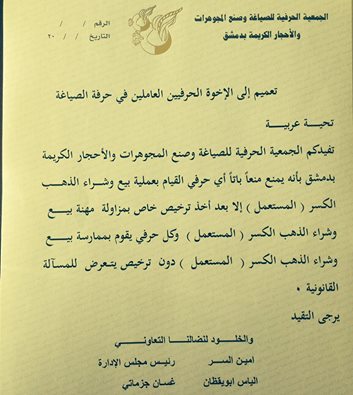 الجمعية الحرفية للصياغة وصنع المجوهرات
والأحجار الكريمة بدمشق
الرقم / /
التاريخ / / ٢٠
تعميم إلى الإخوة الحرفيين العاملين في حرفة الصياغة
تحية عربية
تفيدكم الجمعية الحرفية للصياغة وصنع المجوهرات والأحجار الكريمة
بدمشق بأنه يمنع منعاً باتاً أي حرفي القيام بعملية بيع وشراء الذهب
الكسر ( المستعمل ) إلا بعد أخذ ترخيص خاص بمزاولة مهنة بيع
وشراء الذهب الكسر ( المستعمل ) وكل حرفي يقوم بممارسة بيع
وشراء الذهب الكسر ( المستعمل ) دون ترخيص يتعرض للمسآلة
القانونية .
يرجى التقيد
والخلود لنضالنا التعاوني
أمين السر رئيس مجلس الإدارة
الياس ابويقظان غسان جزماتي